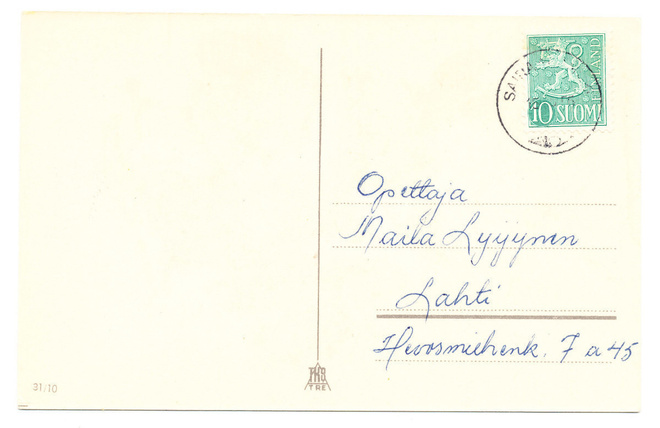 FINLAND
10 SUOMI
Opettaja
Maila Lyijynen
Lahti
Hevosmiehenk. 7 a 45
31/10
TKS
TRE